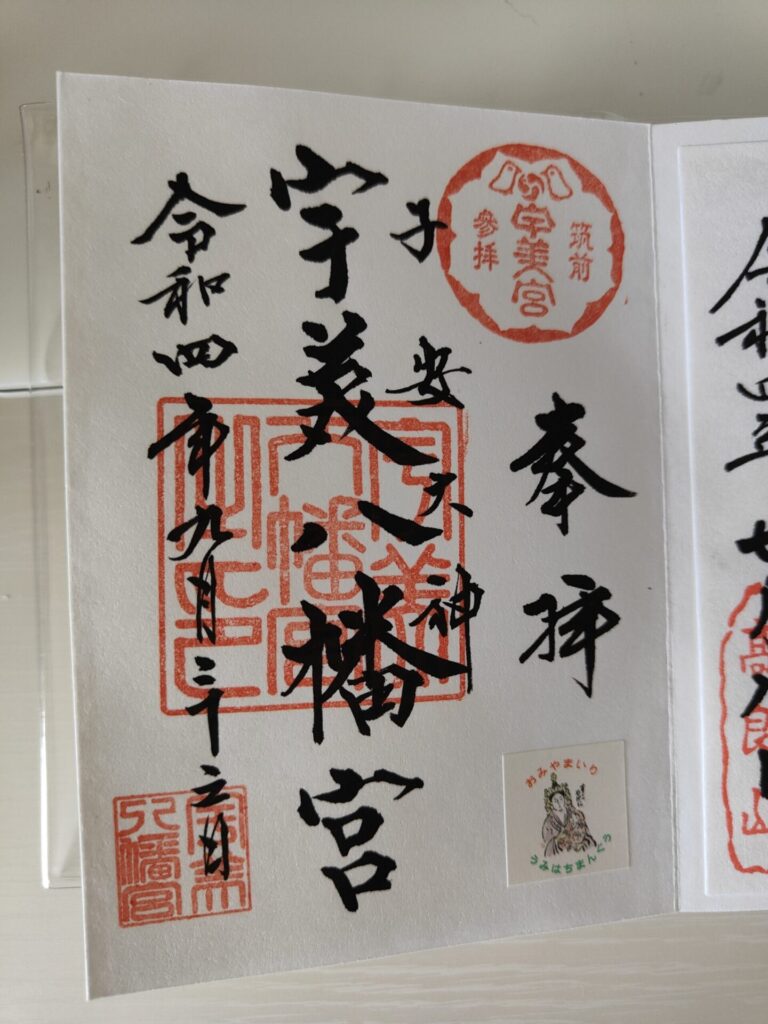 令和四年
七月八日
高良山
筑前
宇美宮
參拝
奉拝
子安大神
宇美八幡宮
宇美
八幡宮
之印
令和四年九月
宇美
八幡宮
おみやまいり
うみはちまんぐう